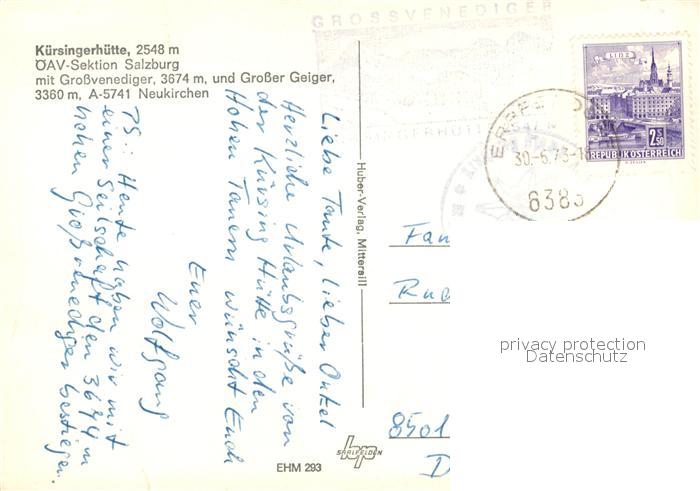 Kürsingerhütte, 2548 m
ÖAV-Sektion Salzburg
mit Großvenediger, 3674 m, und Großer Geiger,
3360 m, A-5741 Neukirchen
Liebe Tante, lieber Onkel
Herzliche Urlaubsgrüße von
der Kürsing Hütte in den
Hohen Tauern wünscht Euch
Euer
Wolfgang
PS: Heute haben wir mit
einer Seilschaft den 3674 m
hohen Großvenediger bestiegen.
Huber-Verlag, Mittersill
GROSSVENEDIGER
LINZ
2.50
REPUBLIK ÖSTERREICH
30.-6.73-18
6383
Fam
8501
D
privacy protection
Datenschutz
hp
SAALFELDEN
EHM 293